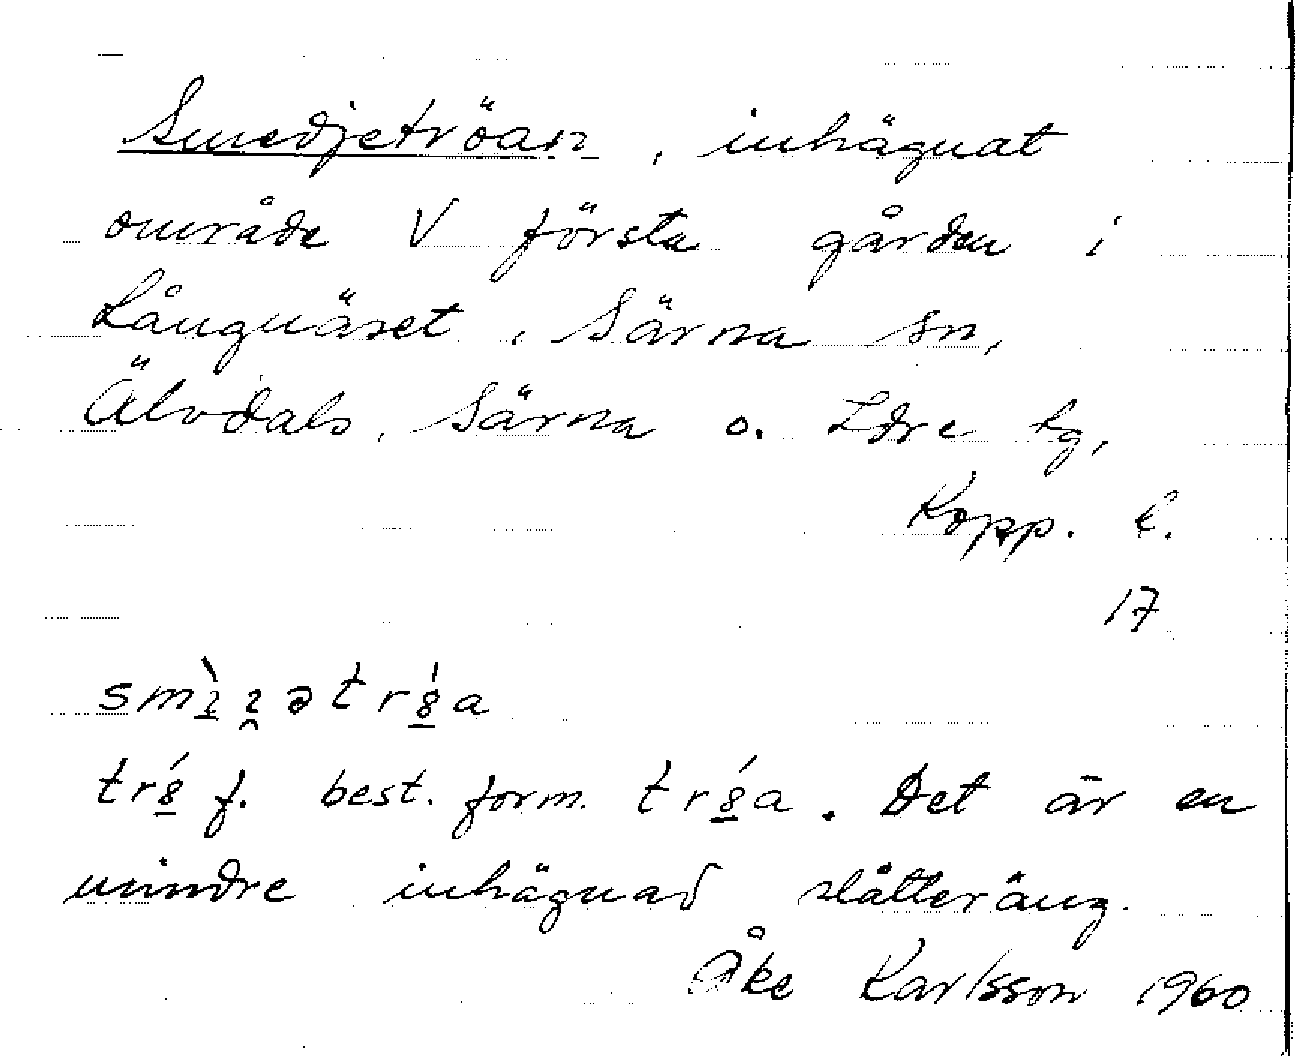 Smedjetröan, inhägnat
område V första gården i
Långnäset, Särna sn,
Älvdals, Särna o. Idre tg,
Kopp. l.
17
f. best. form. Det är en
mindre inhägnad slätteräng.
Åke Karlsson 1960